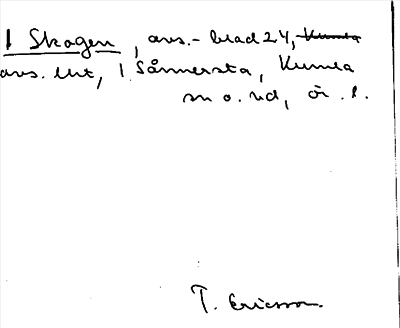 1 Skogen, avs.-blad 24, Kumla
avs. utt, 1 Sånnersta, Kumla
sn o. hd, ör. l.
T. Ericsson.